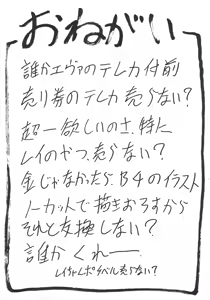 おねがい
誰かエヴァのテレカ付前
売り券のテレカ売らない?
超一欲しいのさ、特に
レイのやつ、売らない?
金じゃなかったら、B4のイラスト
一カットで描きおろすから
それと交換しない?
誰かくれー
売らない?